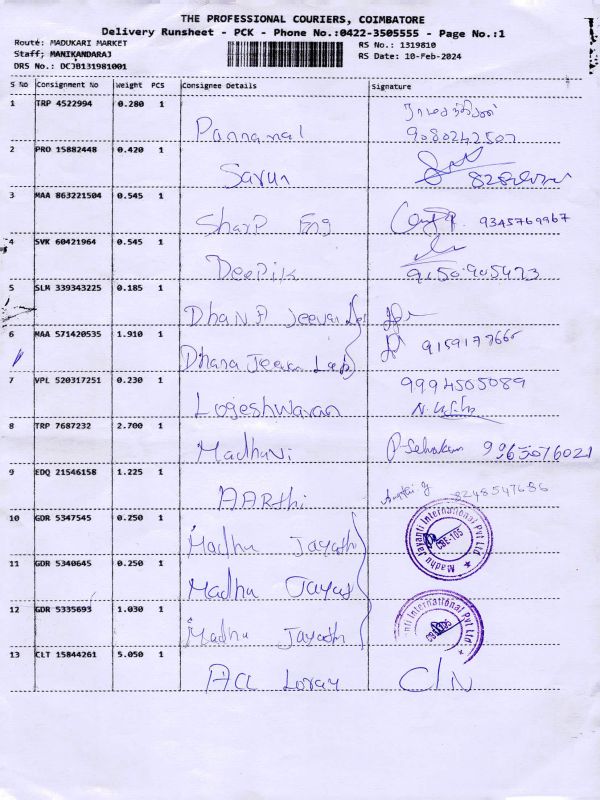 THE PROFESSIONAL COURIERS, COIMBATORE
Delivery Runsheet - PCK - Phone No.:0422-3505555 - Page No.:1
Route: MADUKARI MARKET
RS No.: 1319810
Staff; MANIKANDARAJ
RS Date: 10-Feb-2024
DRS No.: DCJB131981001
S No Consignment No Weight PCS Consignee Details Signature
1 TRP 4522994 0.280 1
9080242507
2 PRO 15882448 0.420 1
Savun
3 MAA 863221504 0.545 1
Sharp Eng 9345769967
4 SVK 60421964 0.545 1
Deepik 9150905423
5 SLM 339343225 0.185 1
Dhana Jeevan Lab
6 MAA 571420535 1.910 1
Dhana Jeevan Lab
7 VPL 520317251 0.230 1 9994505089
Logeshwaran
8 TRP 7687232 2.700 1
Madhavi
9 EDQ 21546158 1.225 1
AARthi 8248547686
10 GDR 5347545 0.250 1
Madhu Jayathi
Madhu Jayanti International Pvt Ltd
CBE-105
11 GDR 5340645 0.250 1
Madhu
12 GDR 5335693 1.030 1
Madhu Jayathi
International Pvt Ltd
13 CLT 15844261 5.050 1
ACL C/N